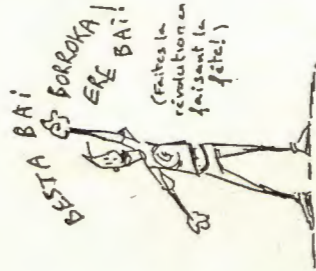 BESTA BAI
BORROKA
ERE
BAI!
(Faites la
révolution en
faisant la
fête!)